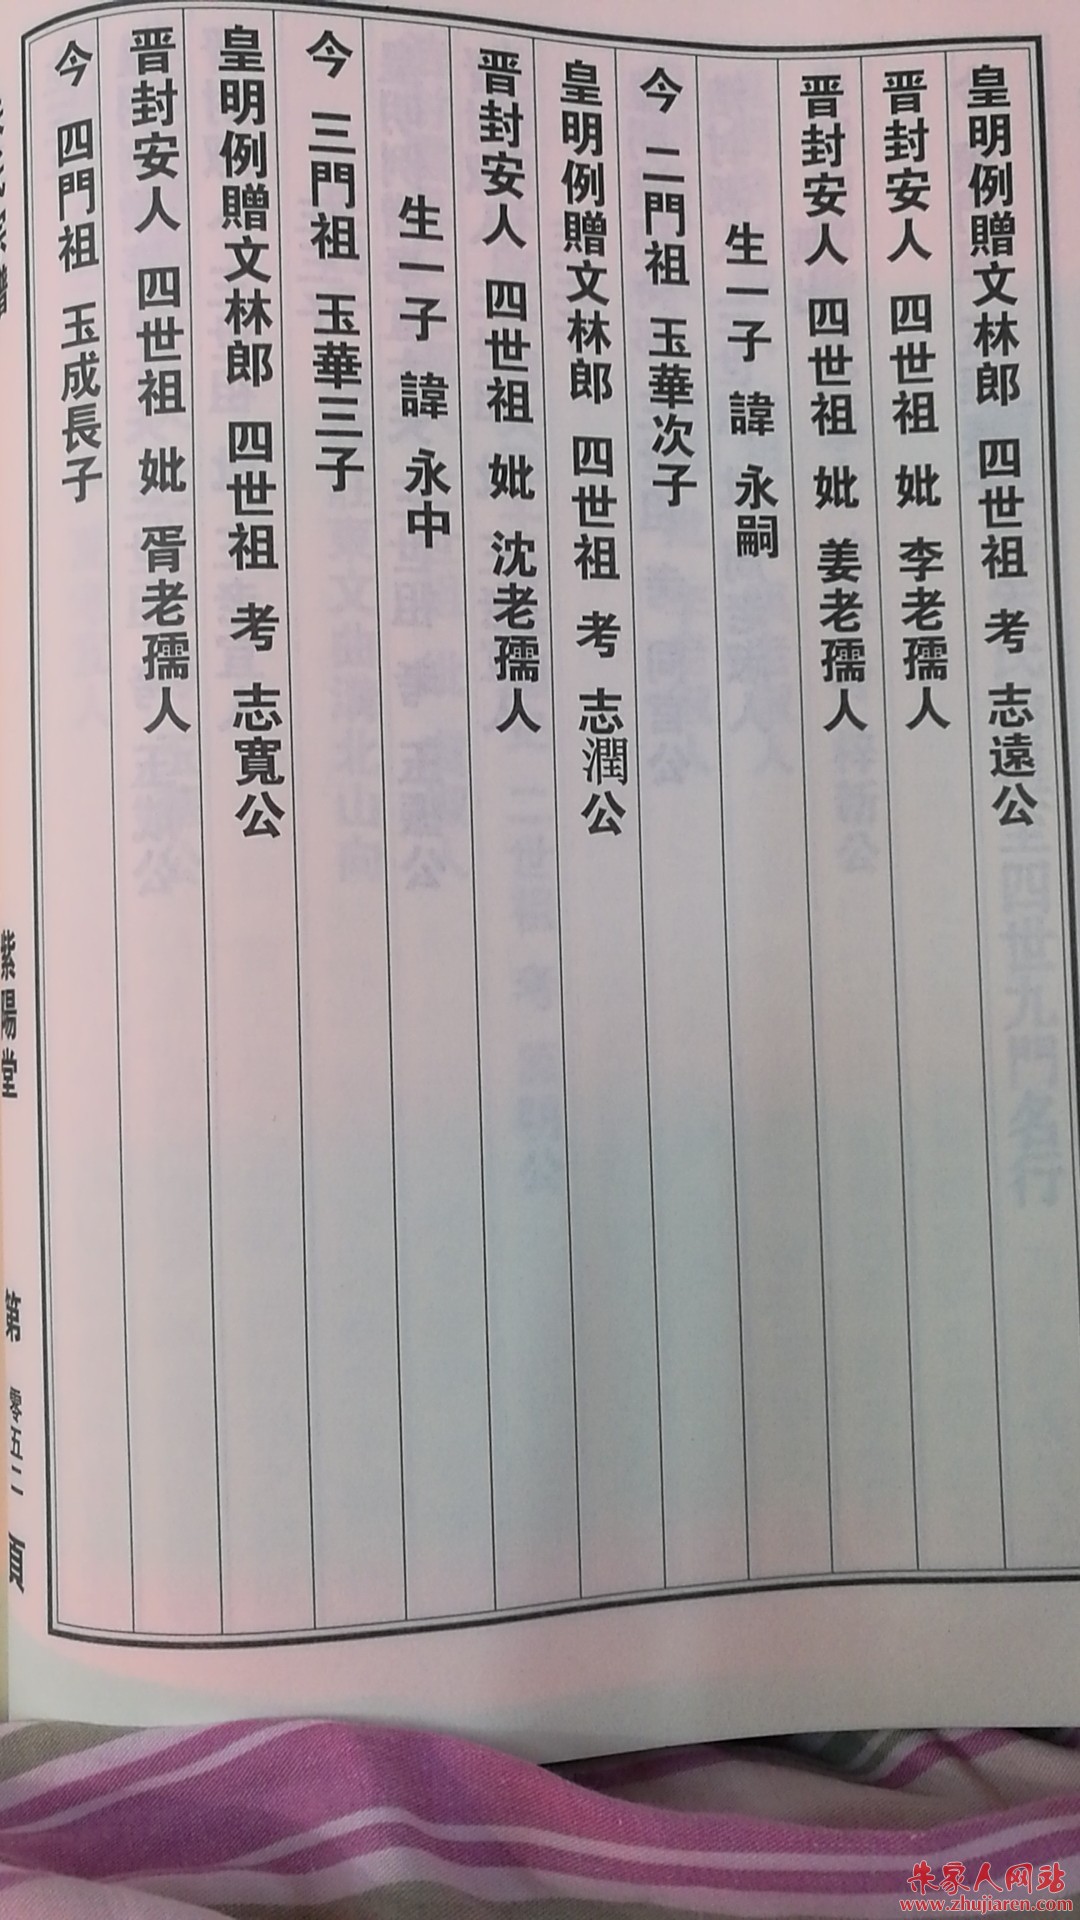 皇明例贈文林郎 四世祖 考 志遠公
晋封安人 四世祖 妣 李老孺人
晋封安人 四世祖 妣 姜老孺人
生一子 諱 永嗣
今 二門祖 玉華次子
皇明例贈文林郎 四世祖 考 志潤公
晋封安人 四世祖 妣 沈老孺人
生一子 諱 永中
今 三門祖 玉華三子
皇明例贈文林郎 四世祖 考 志寬公
晋封安人 四世祖 妣 胥老孺人
今 四門祖 玉成長子
紫陽堂
第 零五二 頁
朱家人网站
www.zhujiaren.com